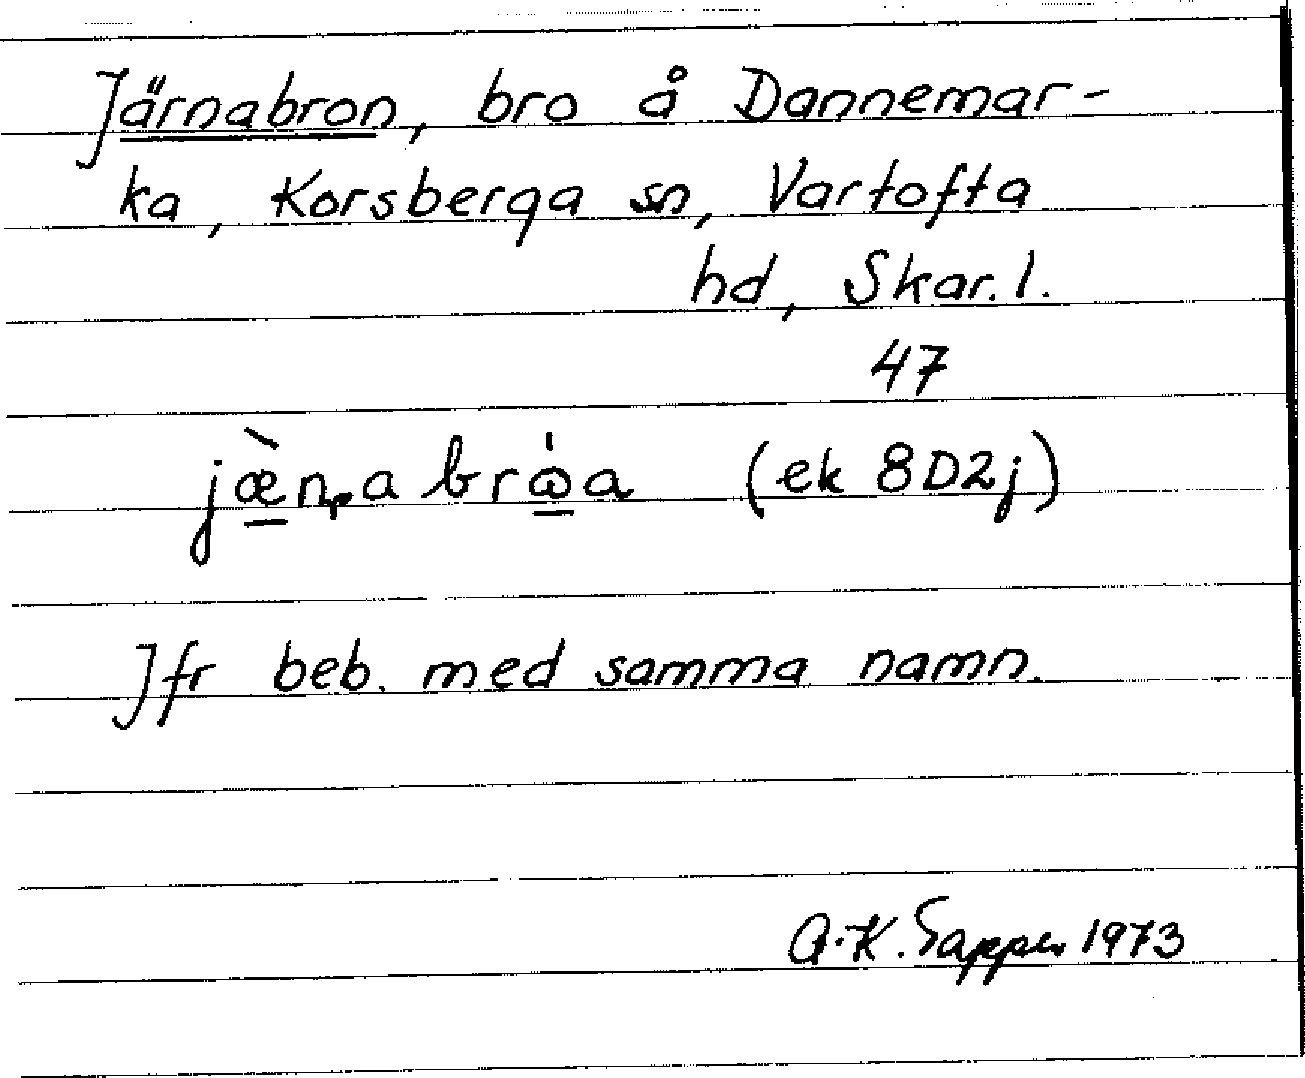 Järnabron, bro å Dannemar-
ka, Korsberga sn, Vartofta
hd, Skar. l.
47
jæ̀n̥a brω̇a (ek 8D2j)
Jfr beb. med samma namn.
A.-K. Sapper 1973